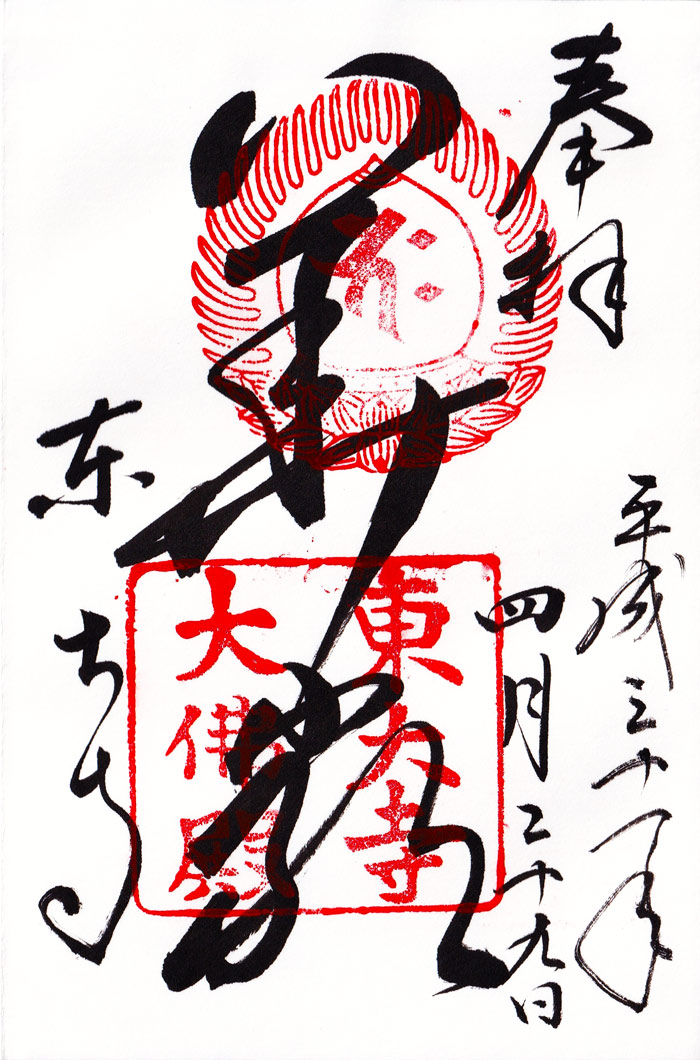 奉拝
平成三十一年
四月二十九日
華厳
東大寺
東大寺
大佛殿